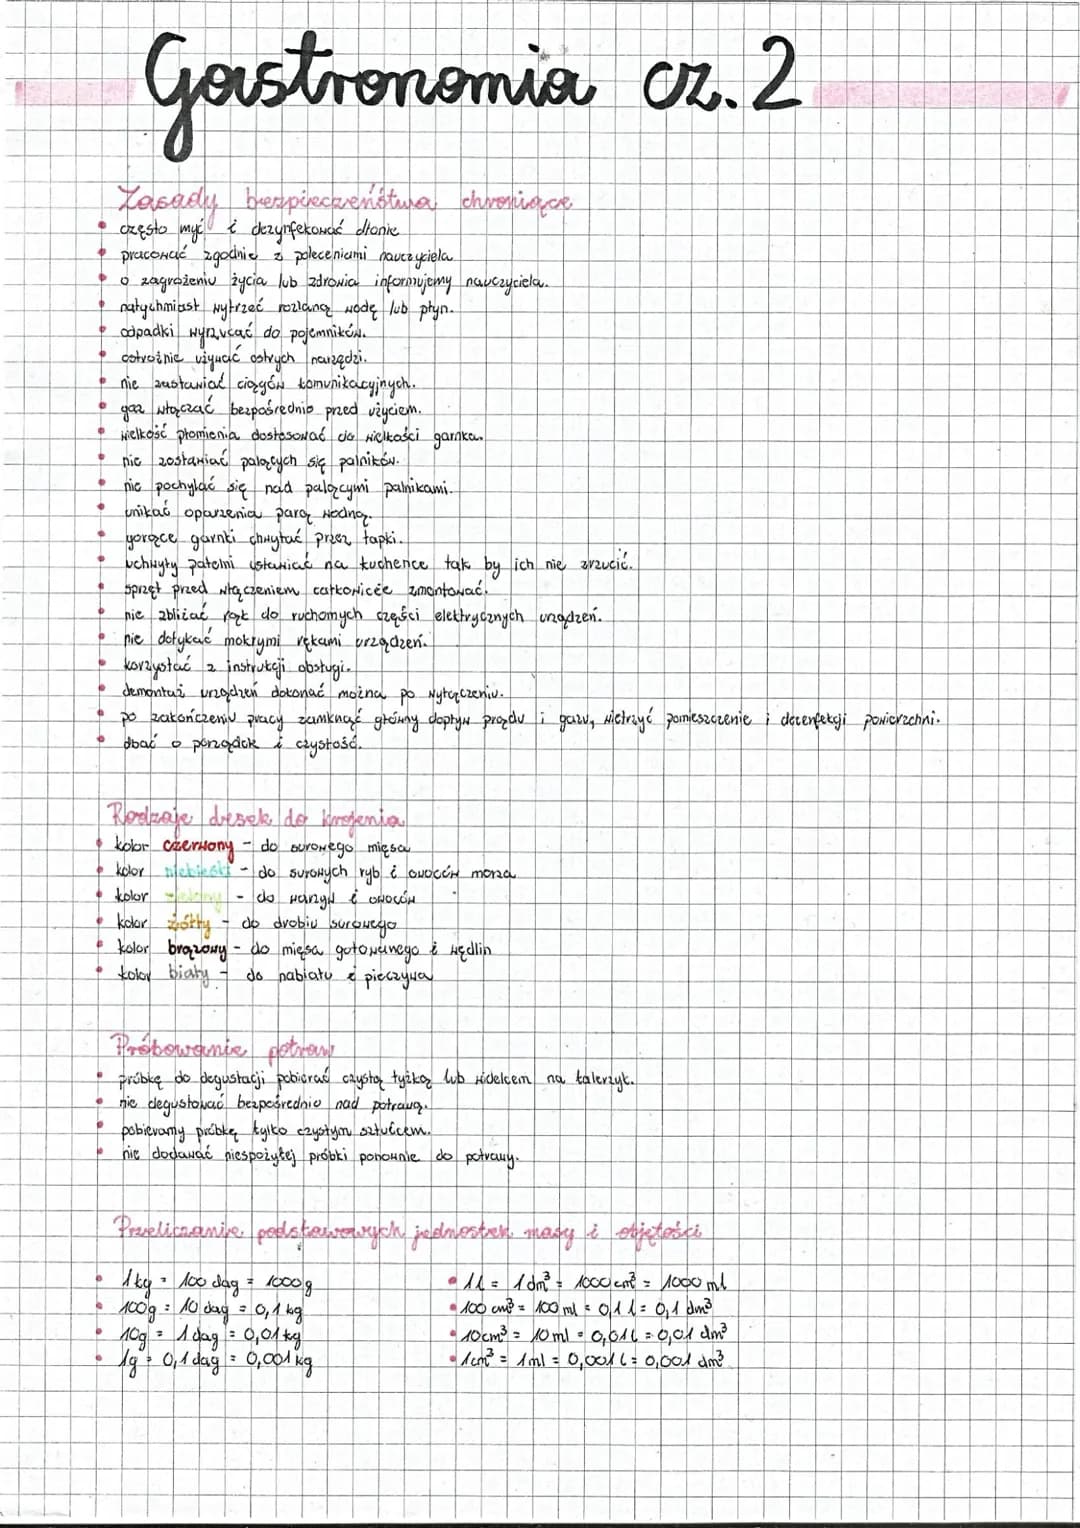 Gastronomia cz. 2
Zasady bezpieczeństwa chroniące
często myć i dezynfekować dłonie
pracować zgodnie z poleceniami nauczyciela
o zagrożeniu życia lub zdrowia informujemy nauczyciela.
natychmiast wytrzeć rozlaną wodę lub płyn.
odpadki wyrzucać do pojemników.
ostrożnie używać ostrych narzędzi.
nie zastawiać ciągów komunikacyjnych.
gaz włączać bezpośrednio przed użyciem.
wielkość płomienia dostosować do wielkości garnka.
nie zostawiać palących się palników.
nie pochylać się nad palącymi palnikami.
unikać oparzenia parą wodną.
gorące garnki chwytać przez łapki.
uchwyty patelni ustawiać na kuchence tak by ich nie zrzucić.
sprzęt przed włączeniem całkowicie zmontować.
nie zbliżać rąk do ruchomych części elektrycznych urządzeń.
nie dotykać mokrymi rękami urządzeń.
korzystać z instrukcji obsługi.
demontaż urządzeń dokonać można po wyłączeniu.
po zakończeniu pracy zamknąć główny dopływ prądu i gazu, wietrzyć pomieszczenie i dezenfekcji powierzchni.
dbać o porządek i czystość.
Rodzaje desek do krojenia
kolor czerwony - do surowego mięsa
kolor niebieski - do surowych ryb i owoców morza
kolor zielony - do warzyw i owoców
kolor żółty - do drobiu surowego
kolor brązowy - do mięsa gotowanego i wędlin
kolor biały - do nabiału i pieczywa
Próbowanie potraw
próbkę do degustacji pobierać czystą łyżką lub widelcem na talerzyk.
nie degustować bezpośrednio nad potrawą.
pobieramy próbkę tylko czystym sztućcem.
nie dodawać niespożytej próbki ponownie do potrawy.
Przeliczanie podstawowych jednostek masy i objętości
1kg = 100 dag = 1000g
100g = 10 dag = 0,1 kg
10g = 1 dag = 0,01 kg
1g = 0,1 dag = 0,001 kg
1l = 1dm³ = 1000cm³ = 1000 ml
100 cm³ = 100 ml = 0,1 l = 0,1 dm³
10cm³ = 10ml = 0,01l = 0,01 dm³
1cm³ = 1ml = 0,001 l = 0,001 dm³